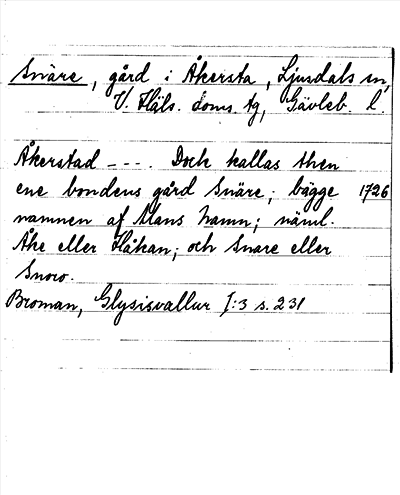 Snäre, gård i Åkersta, Ljusdals sn,
V. Häls. doms. tg, Gävleb. l.
Åkerstad ---. Dock kallas then
ene bondens gård Snäre; bägge 1726
namnen af Mans namn; näml.
Åke eller Håkan; och Snare eller
Snoro.
Broman, Glysisvallur I:3 s. 231